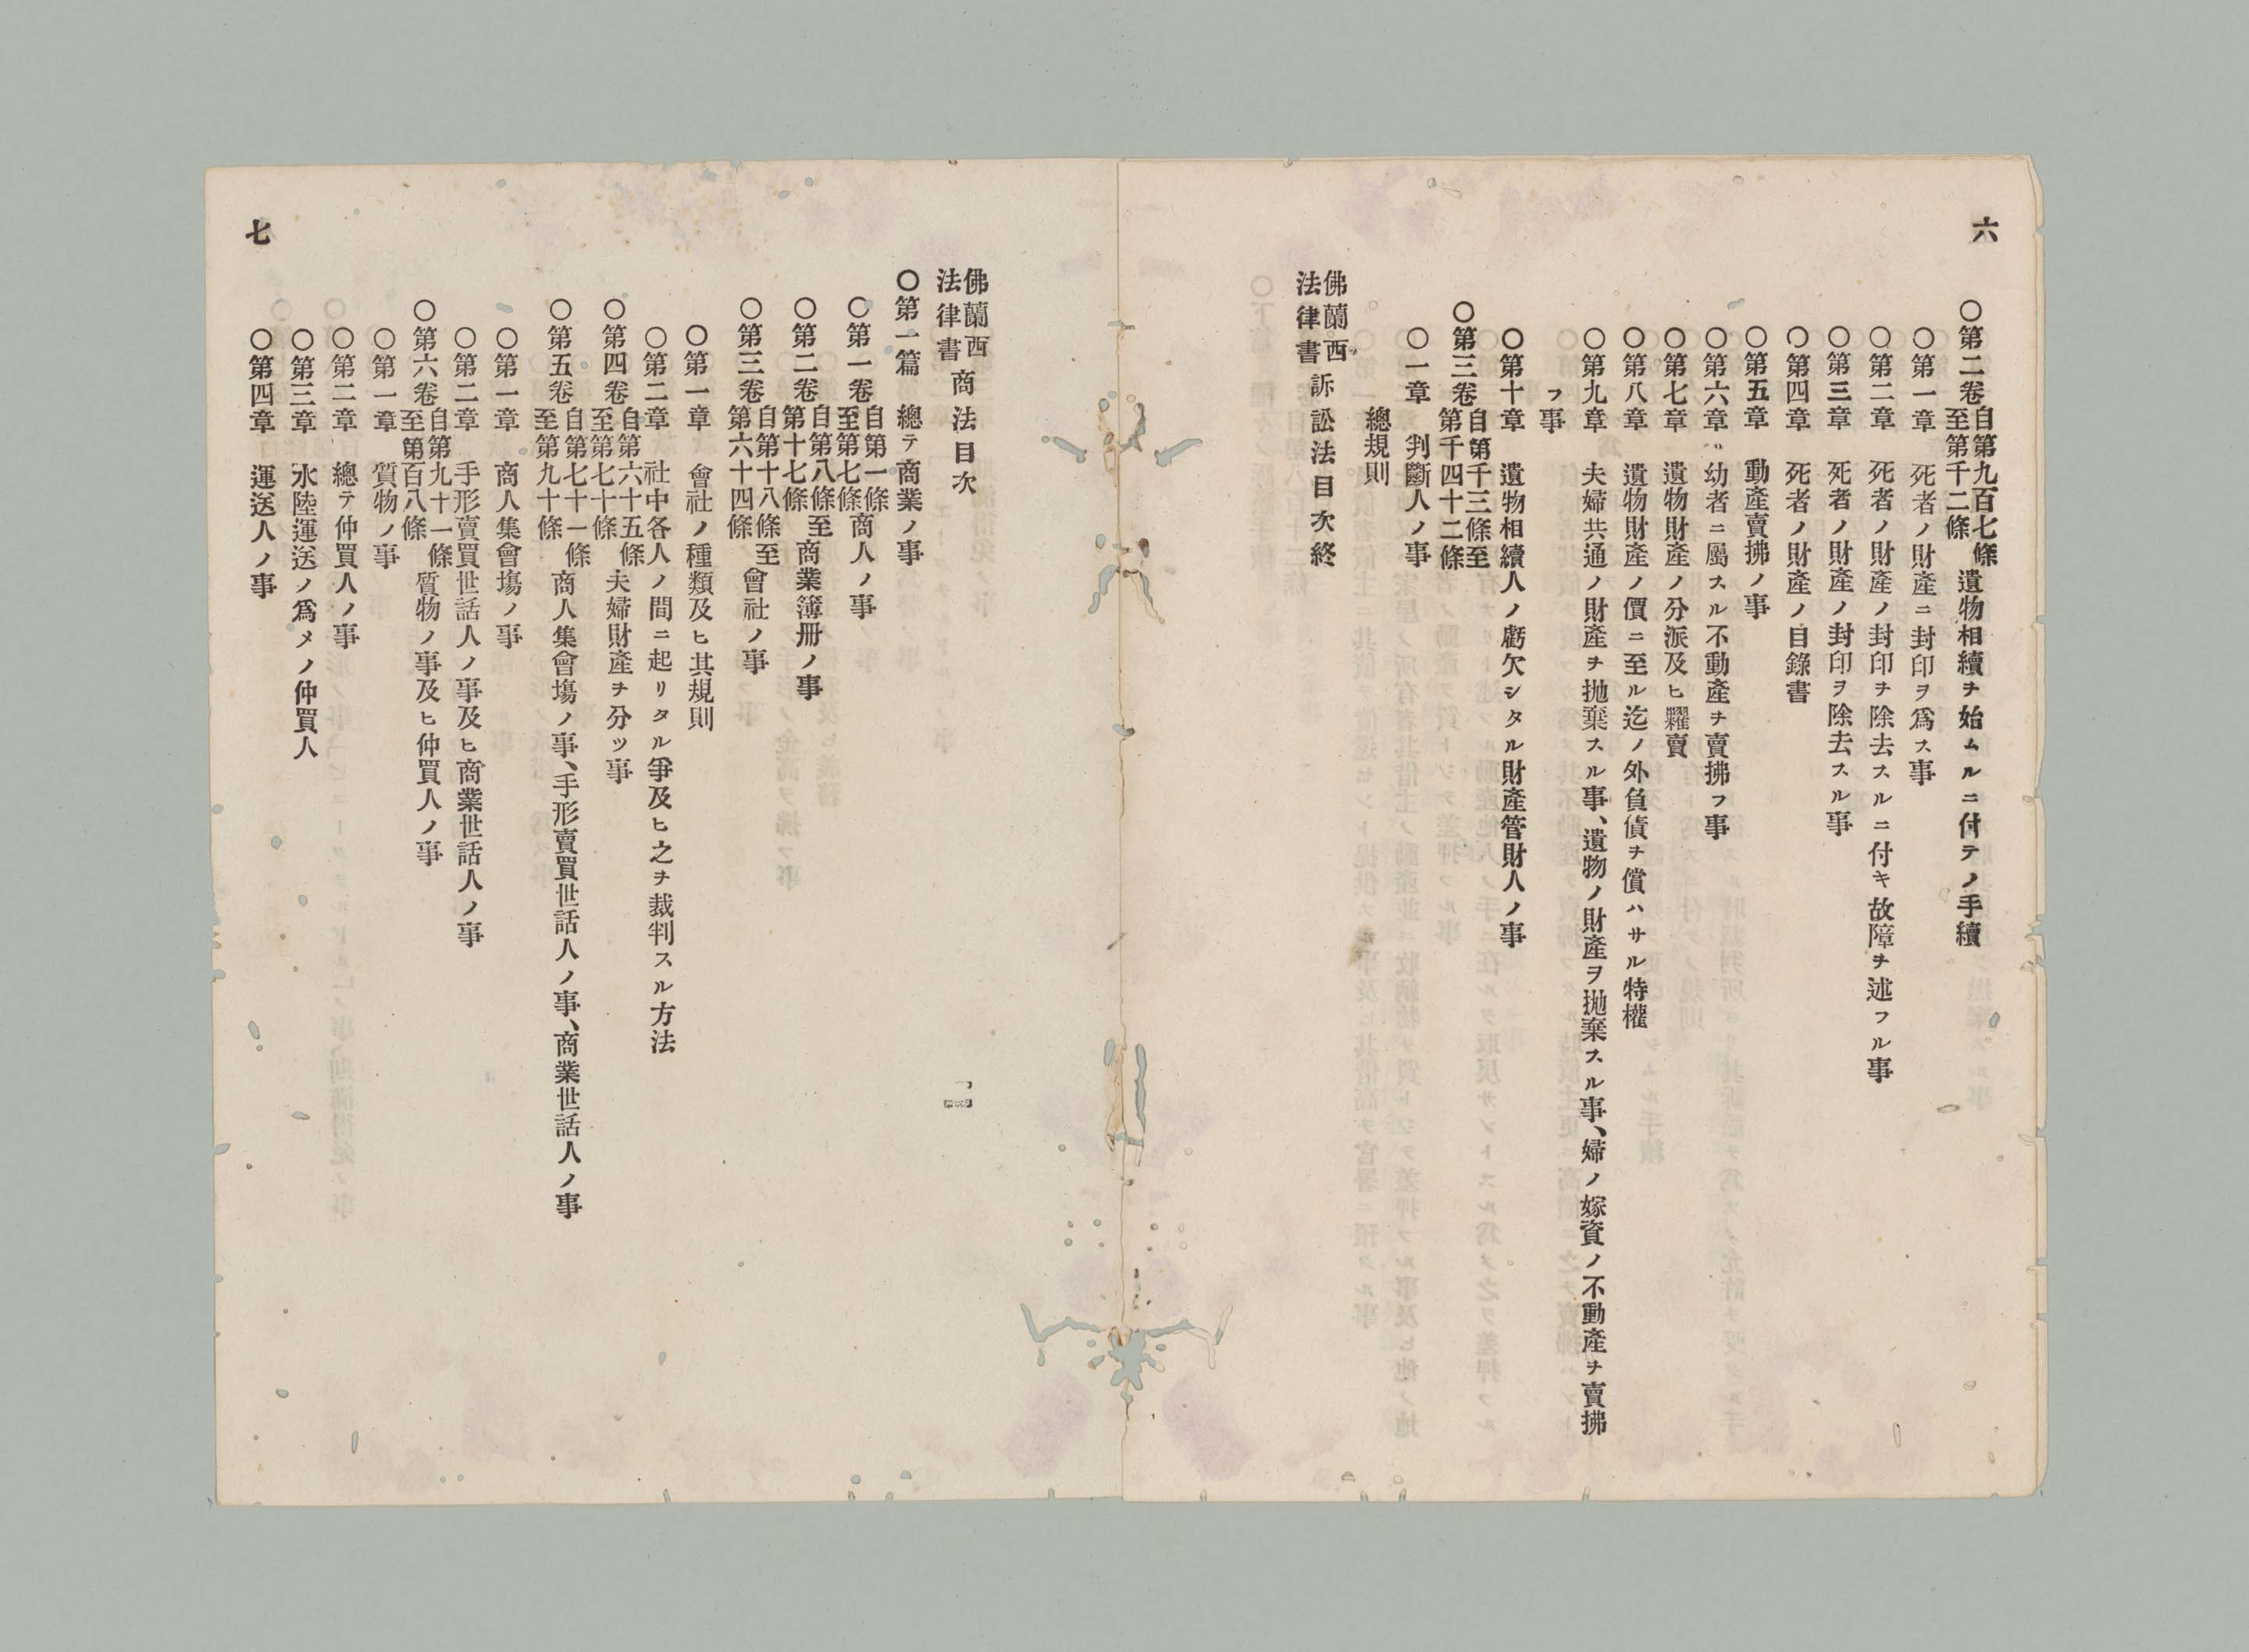 六
〇第二卷自第九百七條至第千二條 遺物相續ヲ始ムルニ付テノ手續
〇第一章 死者ノ財產ニ封印ヲ爲ス事
〇第二章 死者ノ財產ノ封印ヲ除去スルニ付キ故障ヲ述フル事
〇第三章 死者ノ財產ノ封印ヲ除去スル事
〇第四章 死者ノ財產ノ目錄書
〇第五章 動產賣拂ノ事
〇第六章 幼者ニ屬スル不動產ヲ賣拂フ事
〇第七章 遺物財產ノ分派及ヒ糶賣
〇第八章 遺物財產ノ價ニ至ル迄ノ外負債ヲ償ハサル特權
〇第九章 夫婦共通ノ財產ヲ抛棄スル事、遺物ノ財產ヲ抛棄スル事、婦ノ嫁資ノ不動產ヲ賣拂
フ事
〇第十章 遺物相續人ノ虧欠シタル財產管財人ノ事
〇第三卷自第千三條至第千四十二條
〇一章 判斷人ノ事
總規則
佛蘭西法律書 訴訟法目次終
佛蘭西法律書 商法目次
〇第一篇 總テ商業ノ事
〇第一卷自第一條至第七條 商人ノ事
〇第二卷自第八條至第十七條 商業簿冊ノ事
〇第三卷自第十八條至第六十四條 會社ノ事
〇第一章 會社ノ種類及ヒ其規則
〇第二章 社中各人ノ間ニ起リタル爭及ヒ之ヲ裁判スル方法
〇第四卷自第六十五條至第七十條 夫婦財產ヲ分ツ事
〇第五卷自第七十一條至第九十條 商人集會塲ノ事、手形賣買世話人ノ事、商業世話人ノ事
〇第一章 商人集會塲ノ事
〇第二章 手形賣買世話人ノ事及ヒ商業世話人ノ事
〇第六卷自第九十一條至第百八條 質物ノ事及ヒ仲買人ノ事
〇第一章 質物ノ事
〇第二章 總テ仲買人ノ事
〇第三章 水陸運送ノ爲メノ仲買人
〇第四章 運送人ノ事
七